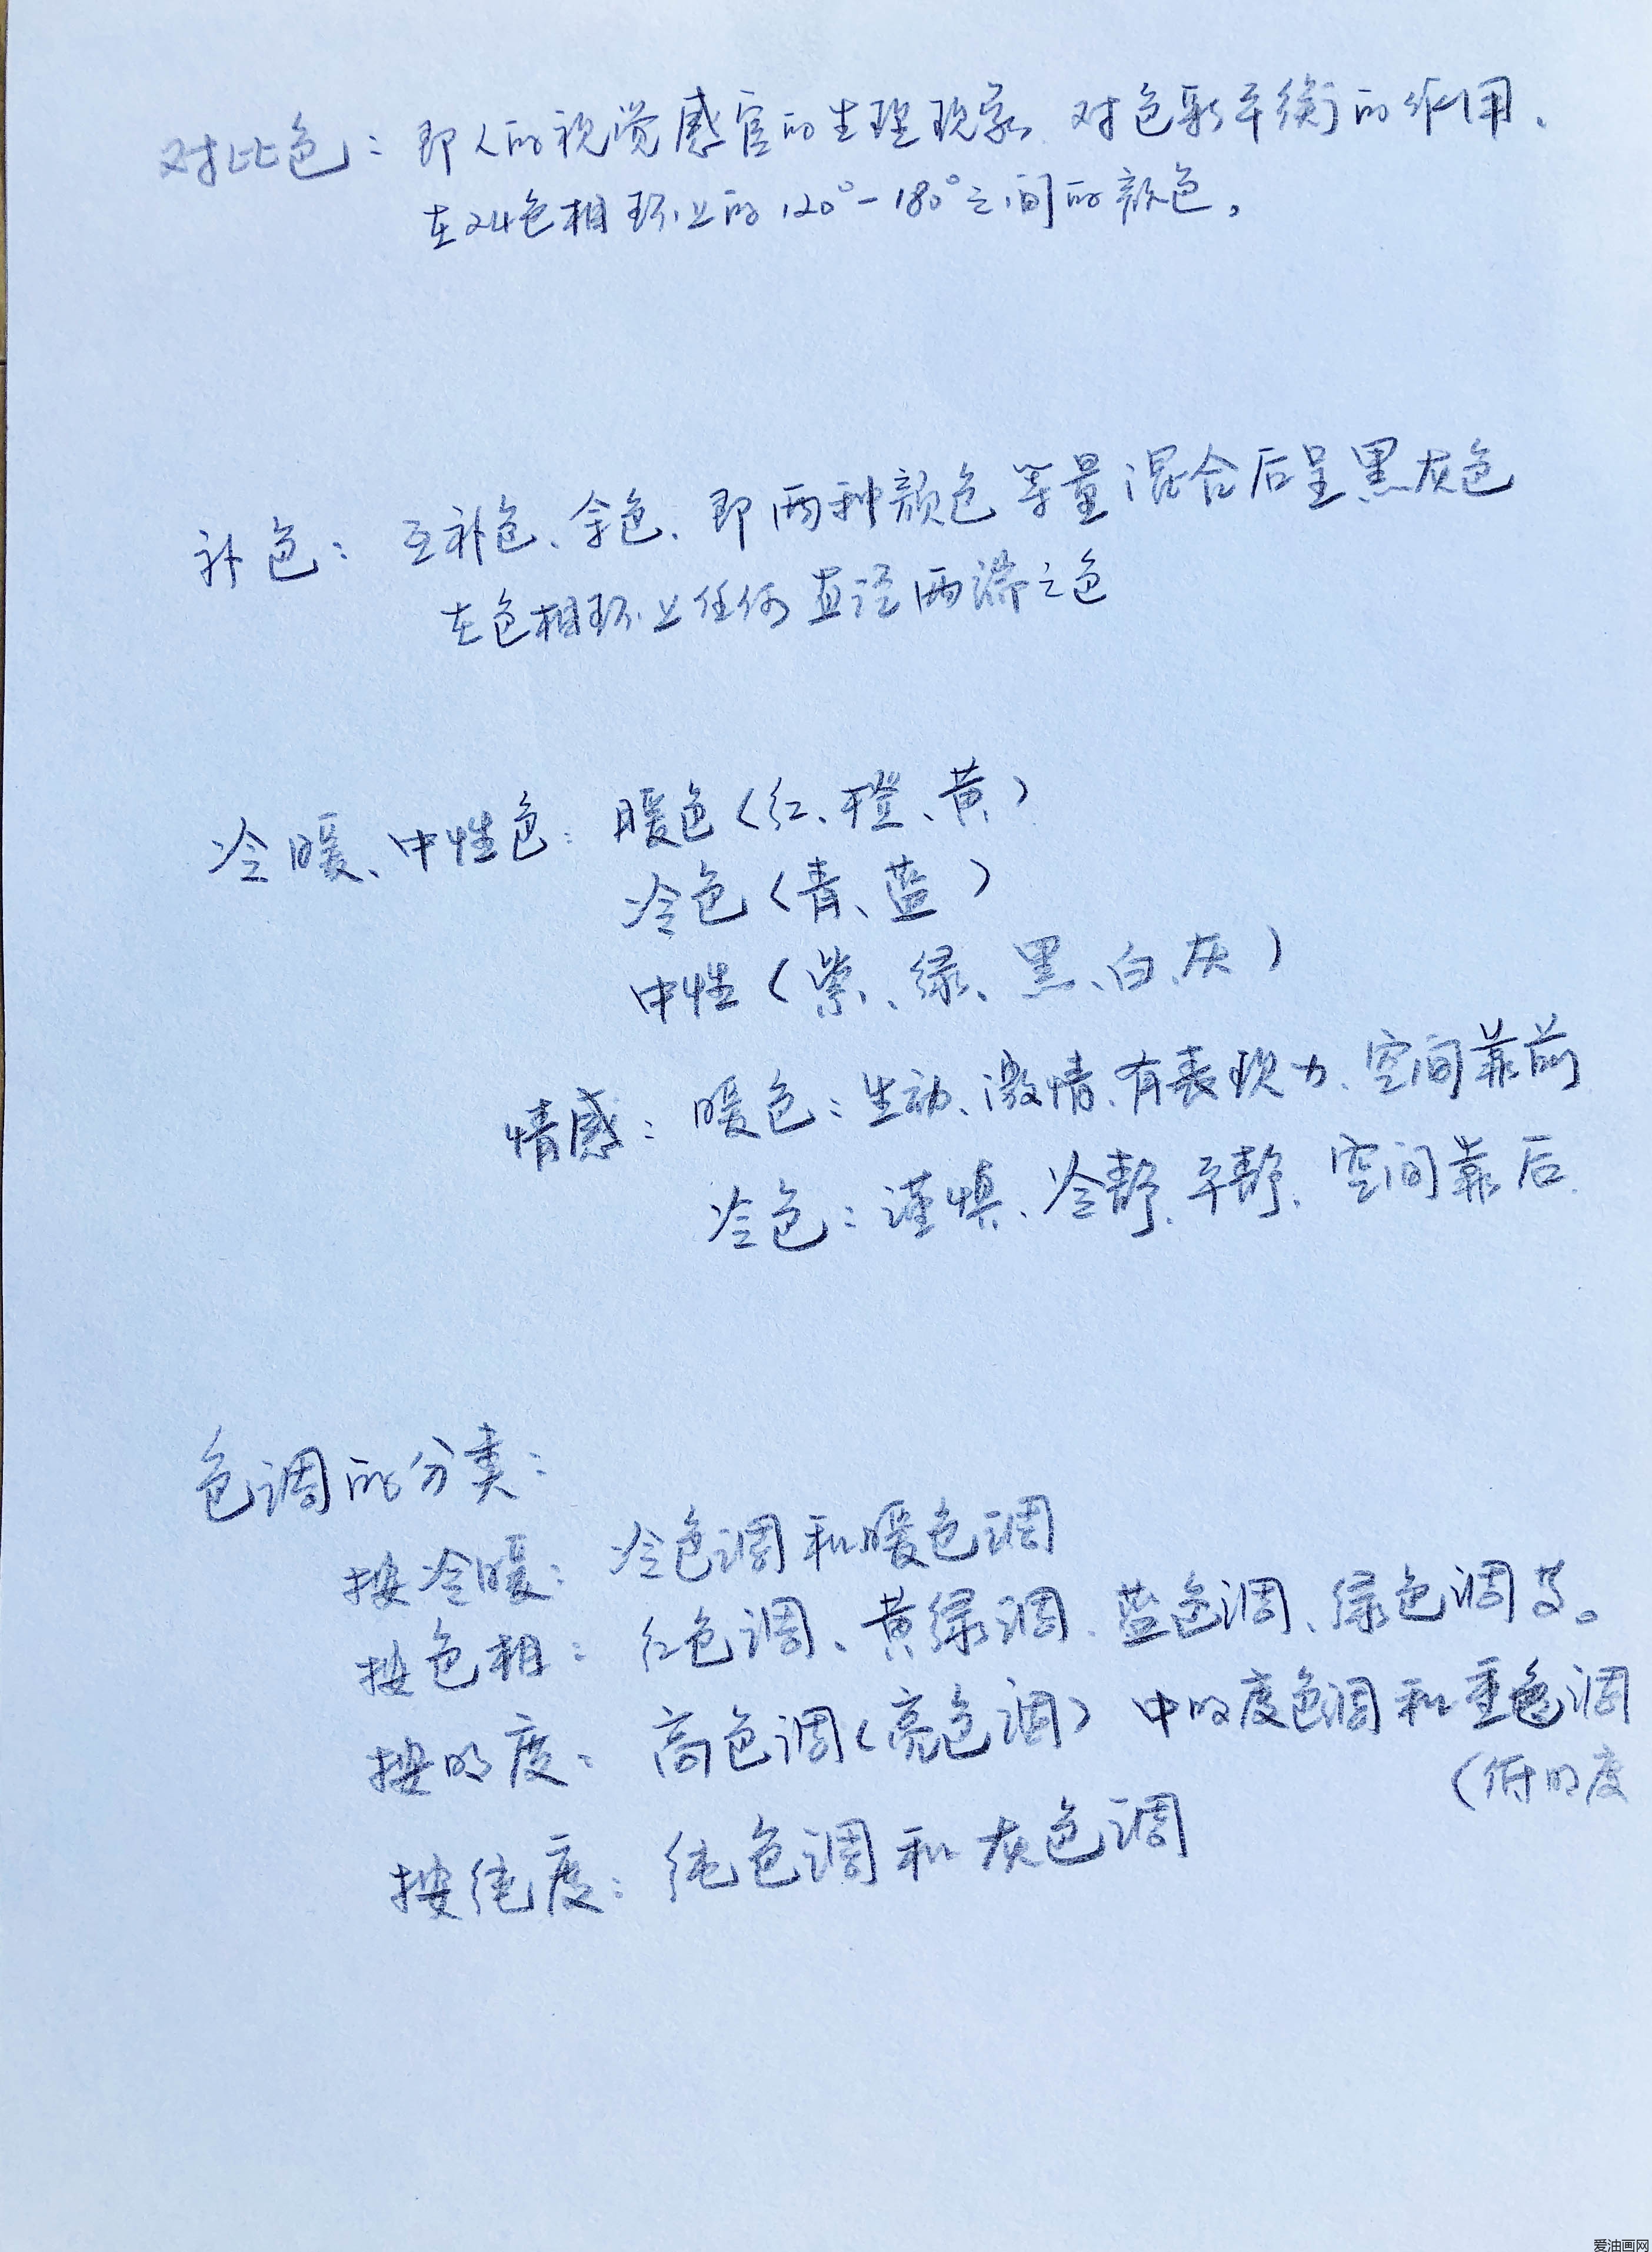 对比色：即人的视觉感官的生理现象 对色彩平衡的作用、
在24色相环上的120°-180°之间的颜色。
补色：互补色、余色、即两种颜色等量混合后呈黑灰色
在色相环上任何直径两端之色
冷暖、中性色：暖色（红、橙、黄）
冷色（青、蓝）
中性（紫、绿、黑、白、灰）
情感：暖色：生动、激情、有表现力、空间靠前
冷色：谨慎、冷静、平静、空间靠后
色调的分类：
按冷暖：冷色调和暖色调
按色相：红色调、黄绿调、蓝色调、绿色调等。
按明度：高色调（亮色调）中明度色调和重色调
（低明度
按纯度：纯色调和灰色调
爱油画网